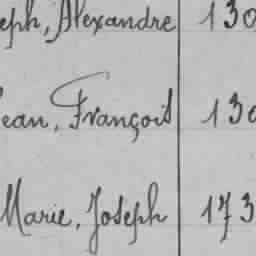 eph, Alexandre 130
ean, François 130
Marie, Joseph 173